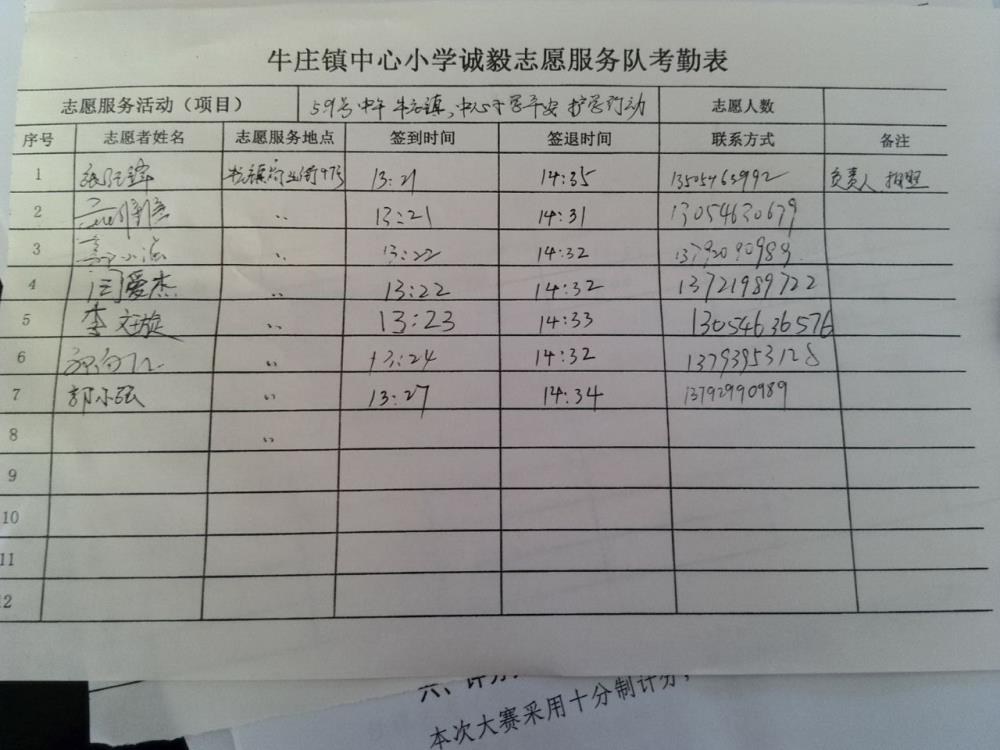 牛庄镇中心小学诚毅志愿服务队考勤表
志愿服务活动（项目） 59号中午牛庄镇中心小学平安护学行动 志愿人数
序号 志愿者姓名 志愿服务地点 签到时间 签退时间 联系方式 备注
1 13:21 14:35 13505462992 负责人
2 〃 13:21 14:31 13054630679
3 〃 13:22 14:32 13792090989
4 闫爱杰 〃 13:22 14:32 13721989722
5 李文旋 〃 13:23 14:33 13054636576
6 〃 13:24 14:32 13793953128
7 郭小强 〃 13:27 14:34 13792990989
8 〃
9
10
11
12
六、评分
本次大赛采用十分制计分，